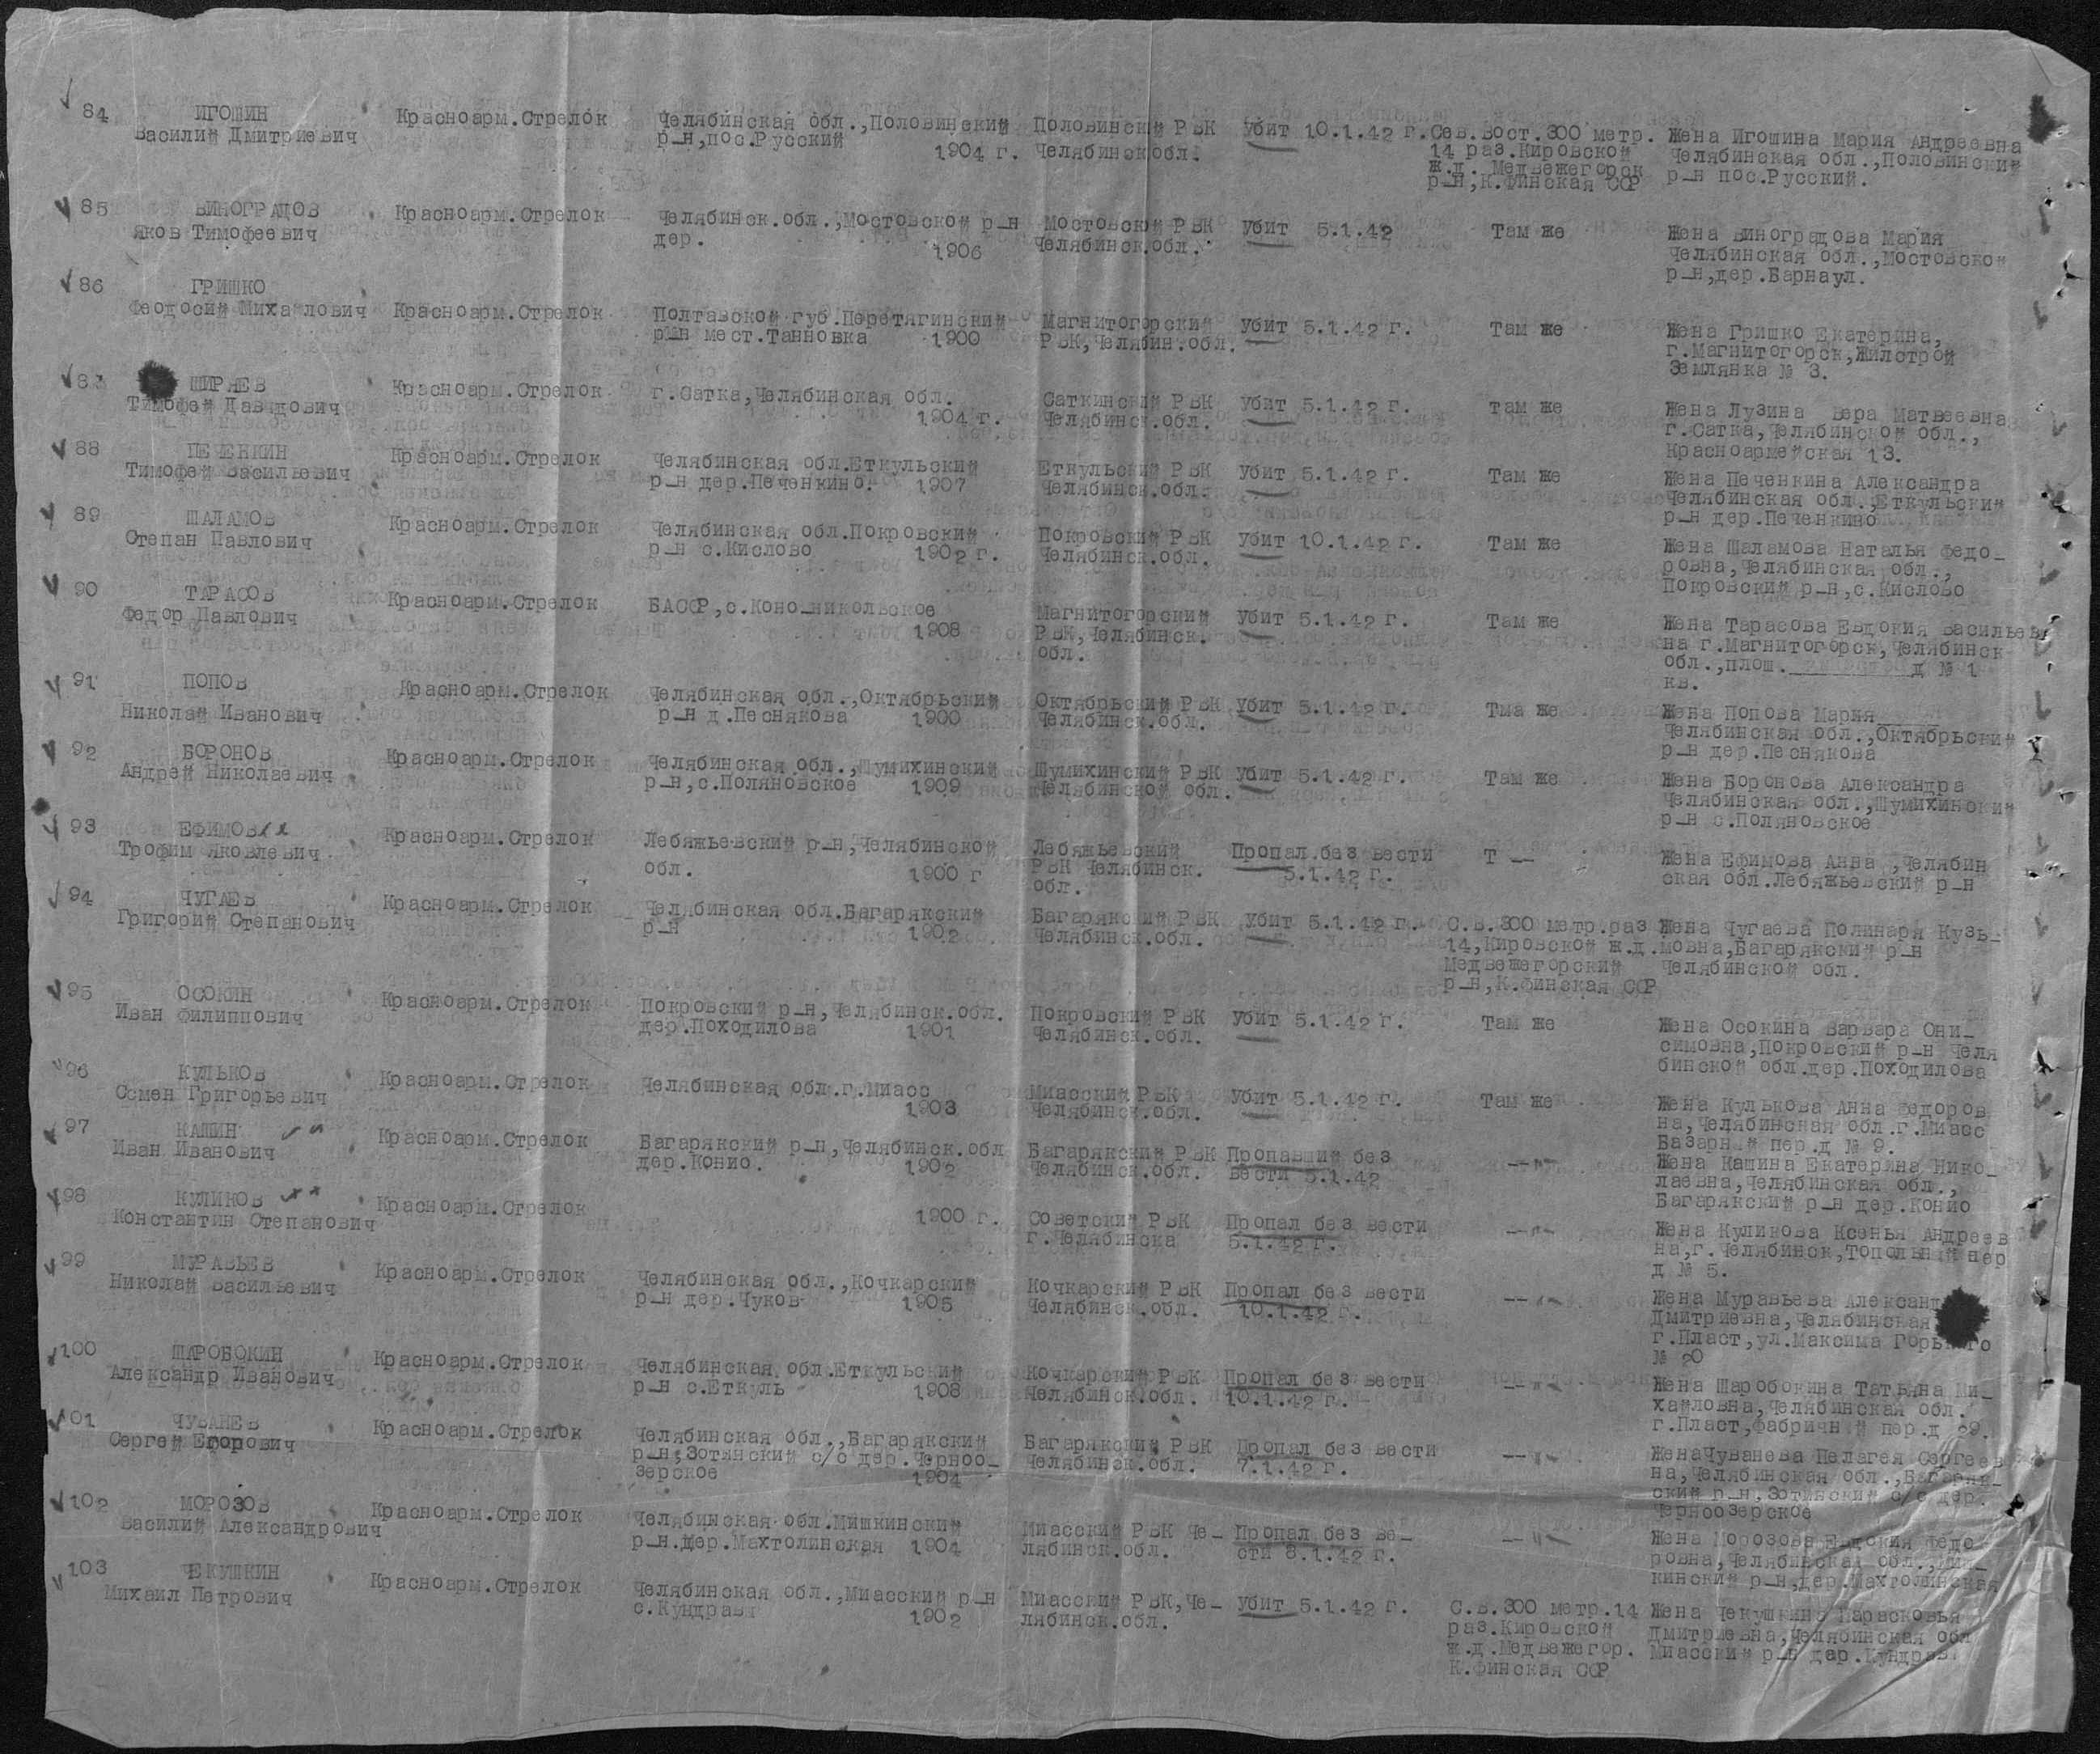 84 ИГОШИН
Василий Дмитриевич
Красноарм.Стрелок
Челябинская обл.,Половинский
р-н,пос.Русский
1904 г.
Половинский РВК
Челябинск.обл.
Убит 10.1.42 г.
Сев.Вост.300 метр.
14 раз.Кировской
ж.д. Медвежегорск
р-н,К.Финская ССР
Жена Игошина Мария Андреевна
Челябинская обл.,Половинский
р-н пос.Русский.
85 ВИНОГРАДОВ
Яков Тимофеевич
Красноарм.Стрелок
Челябинск.обл.,Мостовской р-н
дер.
1906
Мостовский РВК
Челябинск.обл.
Убит 5.1.42
Там же
Жена Виноградова Мария
Челябинская обл.,Мостовской
р-н,дер.Барнаул.
86 ГРИШКО
Феодосий Михайлович
Красноарм.Стрелок
Полтавской губ.Перетягинский
р-н мест.Танновка 1900
Магнитогорский
РВК,Челябин.обл.
Убит 5.1.42 г.
Там же
Жена Гришко Екатерина,
г.Магнитогорск,Жилстрой
Землянка № 3.
87 ШИРЯЕВ
Тимофей Давидович
Красноарм.Стрелок
г.Сатка,Челябинская обл.
1904 г.
Саткинский РВК
Челябинск.обл.
Убит 5.1.42 г.
там же
Жена Лузина Вера Матвеевна
г.Сатка,Челябинской обл.,
Красноармейская 13.
88 ПЕЧЕНКИН
Тимофей Васильевич
Красноарм.Стрелок
Челябинская обл.Еткульский
р-н дер.Печенкино. 1907
Еткульский РВК
Челябинск.обл.
Убит 5.1.42 г.
Там же
Жена Печенкина Александра
Челябинская обл.,Еткульский
р-н дер.Печенкино
89 ШАЛАМОВ
Степан Павлович
Красноарм.Стрелок
Челябинская обл.Покровский
р-н с.Кислово 1902 г.
Покровский РВК
Челябинск.обл.
Убит 10.1.42 г.
Там же
Жена Шаламова Наталья Федо-
ровна,Челябинская обл.,
Покровский р-н,с.Кислово
90 ТАРАСОВ
Федор Павлович
Красноарм.Стрелок
БАССР,с.Коно-никольское
1908
Магнитогорский
РВК,Челябинск.
обл.
Убит 5.1.42 г.
Там же
Жена Тарасова Евдокия Василье
на г.Магнитогорск,Челябинск
обл.,плош. д № 1
кв.
91 ПОПОВ
Николай Иванович
Красноарм.Стрелок
Челябинская обл.,Октябрьский
р-н д.Песнякова 1900
Октябрьский РВК
Челябинск.обл.
Убит 5.1.42 г.
Тма же
Жена Попова Мария
Челябинская обл.,Октябрьский
р-н дер.Песнякова
92 БОРОНОВ
Андрей Николаевич
Красноарм.Стрелок
Челябинская обл.,Шумихинский
р-н,с.Поляновское 1909
Шумихинский РВК
Челябинской обл.
Убит 5.1.42 г.
Там же
Жена Боронова Александра
Челябинская обл.,Шумихинский
р-н с.Поляновское
93 ЕФИМОВ
Трофим Яковлевич
Красноарм.Стрелок
Лебяжьевский р-н,Челябинской
обл. 1900 г
Лебяжьевский
РВК Челябинск.
обл.
Пропал.без вести
5.1.42 г.
Т --
Жена Ефимова Анна ,Челябин
ская обл.Лебяжьевский р-н
94 ЧУГАЕВ
Григорий Степанович
Красноарм.Стрелок
Челябинская обл.Багарякский
р-н 1902
Багарякский РВК
Челябинск.обл.
Убит 5.1.42 г.
С.В.300 метр.раз
14,Кировской ж.д.
Медвежегорский
р-н,К.Финская ССР
Жена Чугаева Полинаря Кузь-
мовна,Багарякский р-н
Челябинской обл.
95 ОСОКИН
Иван Филиппович
Красноарм.Стрелок
Покровский р-н,Челябинск.обл.
дер.Походилова 1901
Покровский РВК
Челябинск.обл.
Убит 5.1.42 г.
Там же
Жена Осокина Варвара Они-
симовна,Покровский р-н Челя
бинской обл.дер.Походилова
96 КУЛЬКОВ
Семен Григорьевич
Красноарм.Стрелок
Челябинская обл.г.Миасс
1903
Миасский РВК
Челябинск.обл.
Убит 5.1.42 г.
Там же
Жена Кулькова Анна Федоров
на,Челябинская обл.г.Миасс
Базарный пер.д № 9.
97 КАШИН
Иван Иванович
Красноарм.Стрелок
Багарякский р-н,Челябинск.обл
дер.Конио. 1902
Багарякский РВК
Челябинск.обл.
Пропавший без
вести 5.1.42
--"--
Жена Кашина Екатерина Нико-
лаевна,Челябинская обл.,
Багарякский р-н дер.Конио
98 КУЛИКОВ
Константин Степанович
Красноарм.Стрелок
1900 г.
Советский РВК
г.Челябинска
Пропал без вести
5.1.42 г.
--"--
Жена Куликова Ксенья Андреев
на,г.Челябинск,Топольный пер
д № 5.
99 МУРАВЬЕВ
Николай Васильевич
Красноарм.Стрелок
Челябинская обл.,Кочкарский
р-н дер.Чуков 1905
Кочкарский РВК
Челябинск.обл.
Пропал без вести
10.1.42 г.
--"--
Жена Муравьева Александ
Дмитриевна,Челябинская
г.Пласт,ул.Максима Горького
№ 20
100 ШАРОБОКИН
Александр Иванович
Красноарм.Стрелок
Челябинская обл.Еткульский
р-н с.Еткуль 1908
Кочкарский РВК
Челябинск.обл.
Пропал без вести
10.1.42 г.
--"--
Жена Шаробокина Татьяна Ми-
хайловна,Челябинская обл.
г.Пласт,Фабричный пер.д 29.
101 ЧУВАНЕВ
Сергей Егорович
Красноарм.Стрелок
Челябинская обл.,Багарякский
р-н,Зотинский с/с дер.Черноо-
зерское 1904
Багарякский РВК
Челябинск.обл.
Пропал без вести
7.1.42 г.
--"--
ЖенаЧуванева Пелагея Сергеев
на,Челябинская обл.,Багаряк-
ский р-н,Зотинский с/с дер.
Черноозерское
102 МОРОЗОВ
Василий Александрович
Красноарм.Стрелок
Челябинская обл.Мишкинский
р-н.дер.Махтолинская 1904
Миасский РВК Че-
лябинск.обл.
Пропал без ве-
сти 8.1.42 г.
--"--
Жена Морозова Евдокия Федо-
ровна,Челябинская обл.,Миш-
кинский р-н,дер.Махтолинская
103 ЧЕКУШКИН
Михаил Петрович
Красноарм.Стрелок
Челябинская обл.,Миасский р-н
с.Кундравы 1902
Миасский РВК,Че-
лябинск.обл.
Убит 5.1.42 г.
С.В.300 метр.14
раз.Кировской
ж.д.Медвежегор.
К.Финская ССР
Жена Чекушкина Парасковья
Дмитриевна,Челябинская обл
Миасский р-н дер.Кундрав